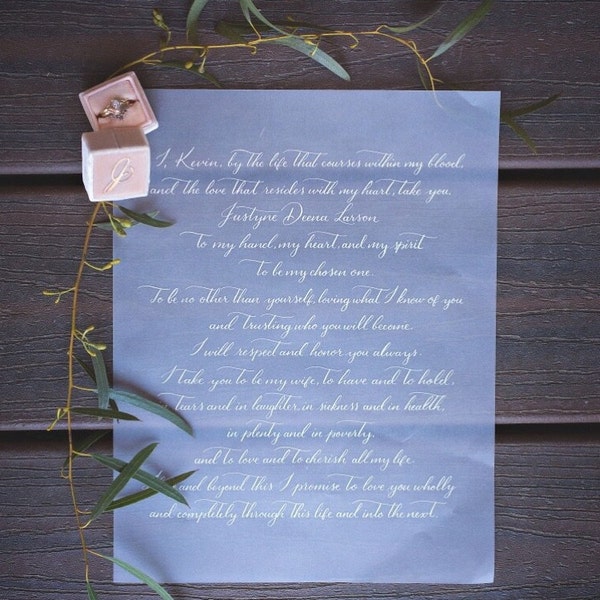 I, Kevin, by the life that courses within my blood,
and the love that resides with my hart, take you,
Justyne Deena Larson
to my hand, my heart, and my spirit
To be my chosen one.
To be no other than yourself, loving what I know of you
and trusting who you will become.
I will respect and honor you always.
I take you to be my wife, to have and to hold,
tears and in laughter, in sickness and in health,
in plenty and in poverty,
and to love and to cherish all my life.
and beyond this I promise to love you wholly
and completely through this life and into the next.